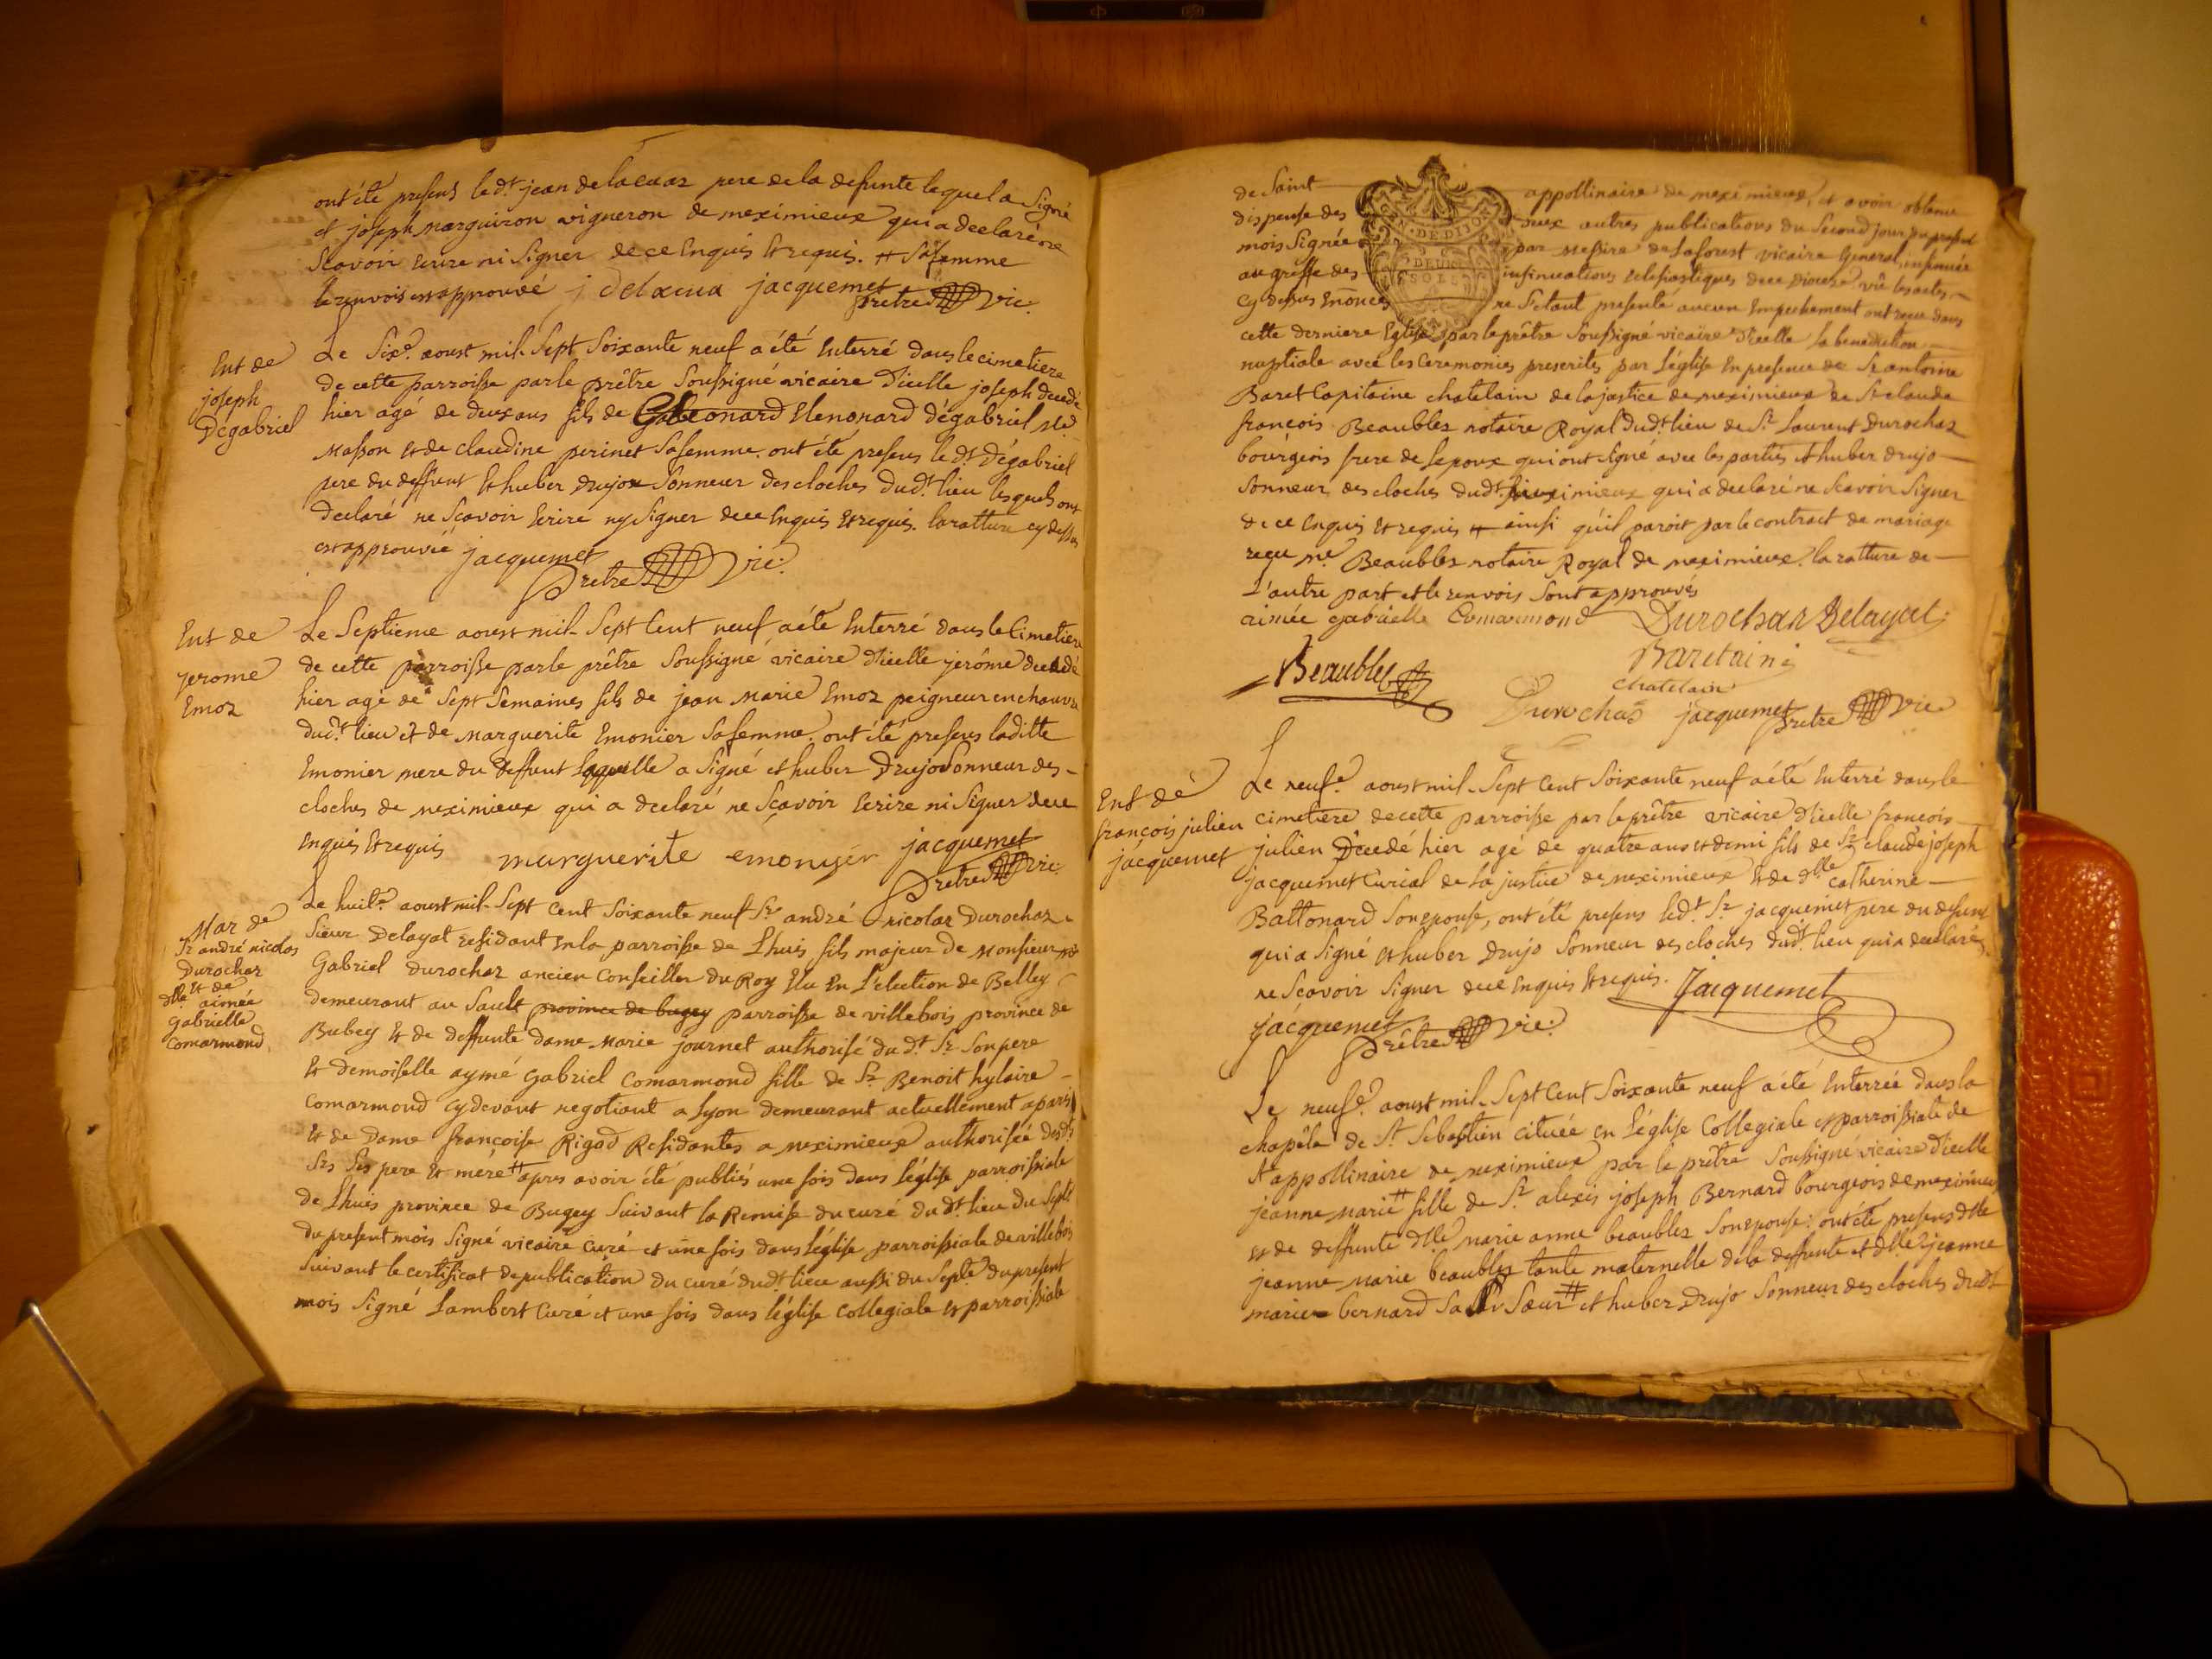 ont été presens le dt. jean delacuaz pere de la defunte lequel a Signé
et joseph marguiron vigneron de meximieux qui a declaré ne
Scavoir Ecrire ni Signer de ce Enquis Et requis. # Sa femme
le renvois est approuvé j delacua jacquemet
Prêtre vic.
Ent de
joseph
Dégabriel
Le Sixe. aoust mil Sept Soixante neuf a été Enterré dans le cimetiere
de cette parroisse par le prêtre Soussigné vicaire d'icelle joseph decedé
hier agé de deux ans fils de Leonard Dégabriel me.
Masson Et de claudine perinet Sa femme. ont été presens le dt. Dégabriel
pere du deffunt Et huber Drujon Sonneur des cloches dudt. lieu lesquels ont
declaré ne Scavoir Ecrire ny Signer de ce Enquis Et requis. la ratture cy dessus
est approuvée jacquemet
Prêtre vic.
Ent de
jerome
Emoz
Le Septieme aoust mil Sept Cent neuf a été Enterré dans le Cimetiere
de cette parroisse par le prêtre Soussigné vicaire d'icelle jerôme decedé
hier agé de Sept Semaines fils de jean Marie Emoz peigneur en chanvre
dudt. lieu et de Marguerite Emonier Sa femme. ont été presens laditte
Emonier mere du deffunt laquelle a Signé et huber Drujo Sonneur des
cloches de meximieux qui a declaré ne Scavoir Ecrire ni Signer de ce
Enquis Et requis marguerite emonyer jacquemet
Prêtre vic.
Mar de
Sr andré nicolas
Durochaz
Et de
dlle aimée
Gabrielle
Comarmond
Le huite. aoust mil Sept Cent Soixante neuf Sr. andré nicolas Durochaz
Sieur Delayat residant en la parroisse de Lhuis, fils majeur de Monsieur me
Gabriel Durochaz ancien Conseiller du Roy Elu En L'election de Belley
demeurant au Sault province de bugey parroisse de villebois province de
Bubey Et de deffunte dame Marie journet authorisé du dt. Sr. Son pere
Et demoiselle aymé Gabriel Comarmond fille de Sr. Benoit hylaire
Comarmond cy devant negotiant a Lyon demeurant actuellement a paris
Et de Dame françoise Rigod Residantes a meximieux authorisée desdts
Srs Ses pere Et mere # apres avoir été publiés une fois dans L'église parroissiale
de Lhuis province de Bugey Suivant la Remise du curé du dt. lieu du Septe
du present mois Signé vicaire Curé et une fois dans L'église parroissiale de villebois
Suivant le certificat de publication du curé dudt. lieu aussi du Septe du present
mois Signé Lambert Curé et une fois dans L'église Collegiale Et parroissiale
de Saint appollinaire de meximieux, et avoir obtenu
dispense des deux autres publications du Second jour du present
mois Signée par Messire de Laforest vicaire General, insinuée
au greffe des insinuations Eclesiastiques de ce Diocese vû les actes
cy dessus Enoncés ne S'etant presenté aucun Empechement ont recu dans
cette derniere Eglise par le prêtre Soussigné vicaire d'icelle la benediction
nuptiale avec les Ceremonies prescrites par L'église En presence de Sr. antoine
Baret Capitaine chatelain de la justice de meximieux de Sr. claude
françois Beaublez notaire Royal dudt. lieu de Sr. Laurent Durochaz
bourgeois frere de L'epoux qui ont Signé avec les parties Et huber Drujo
Sonneur des cloches dudt. meximieux qui a declaré ne Scavoir Signer
de ce Enquis Et requis # ainsi qu'il paroit par le contract de mariage
reçu me. Beaublez notaire Royal de meximieux. la ratture de
L'autre part et le renvois Sont approuvés
aimée gabrielle Comarmond Durochaz Delayat
Beaublez
chatelain
Durochaz jacquemet
Prêtre vic
GEN. DE DIJON
DEUX
SOLS
Ent de
françois julien
jacquemet
Le neufe. aoust mil Sept Cent Soixante neuf a été Enterré dans le
cimetiere de cette parroisse par le prêtre vicaire d'icelle françois
julien Decedé hier agé de quatre ans et demi fils de Sr. claude joseph
jacquemet Curial de la justice de meximieux Et de dlle Catherine
Battonard Son epouse, ont été presens ledt. Sr. jacquemet pere du defunt
qui a Signé Et huber Drujo Sonneur des cloches dudt. lieu qui a declaré
ne Scavoir Signer de ce Enquis Et requis. Jacquemet
jacquemet
Prêtre vic.
Le neufe. aoust mil Sept Cent Soixante neuf a été Enterrée dans la
chapele de St. Sebastien cituée en L'église Collegiale Et parroissiale de
St appollinaire de meximieux par le prêtre Soussigné vicaire d'icelle
jeanne Marie # fille de Sr. alexis joseph Bernard bourgeois de meximieux
Et de deffunte dlle marie anne beaublez Son epouse. ont été presens dlle
jeanne Marie beaublez tante maternelle de la deffunte et dlle jeanne
marie bernard Sa Sœur # et huber Drujo Sonneur des cloches dudt